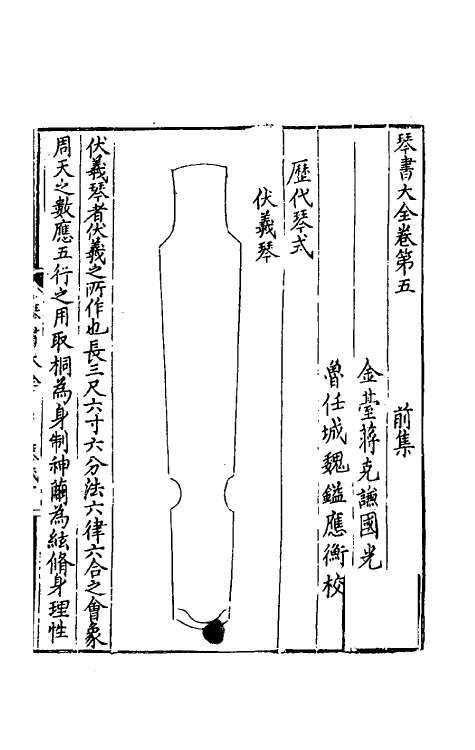 琴書大全卷第五　前集
金臺蔣克謙國光
魯任城魏鎰應衡校
歷代琴式
伏羲琴
伏羲琴者伏羲之所作也長三尺六寸六分法六律六合之會象
周天之數應五行之用取桐為身制神繭為絃脩身理性